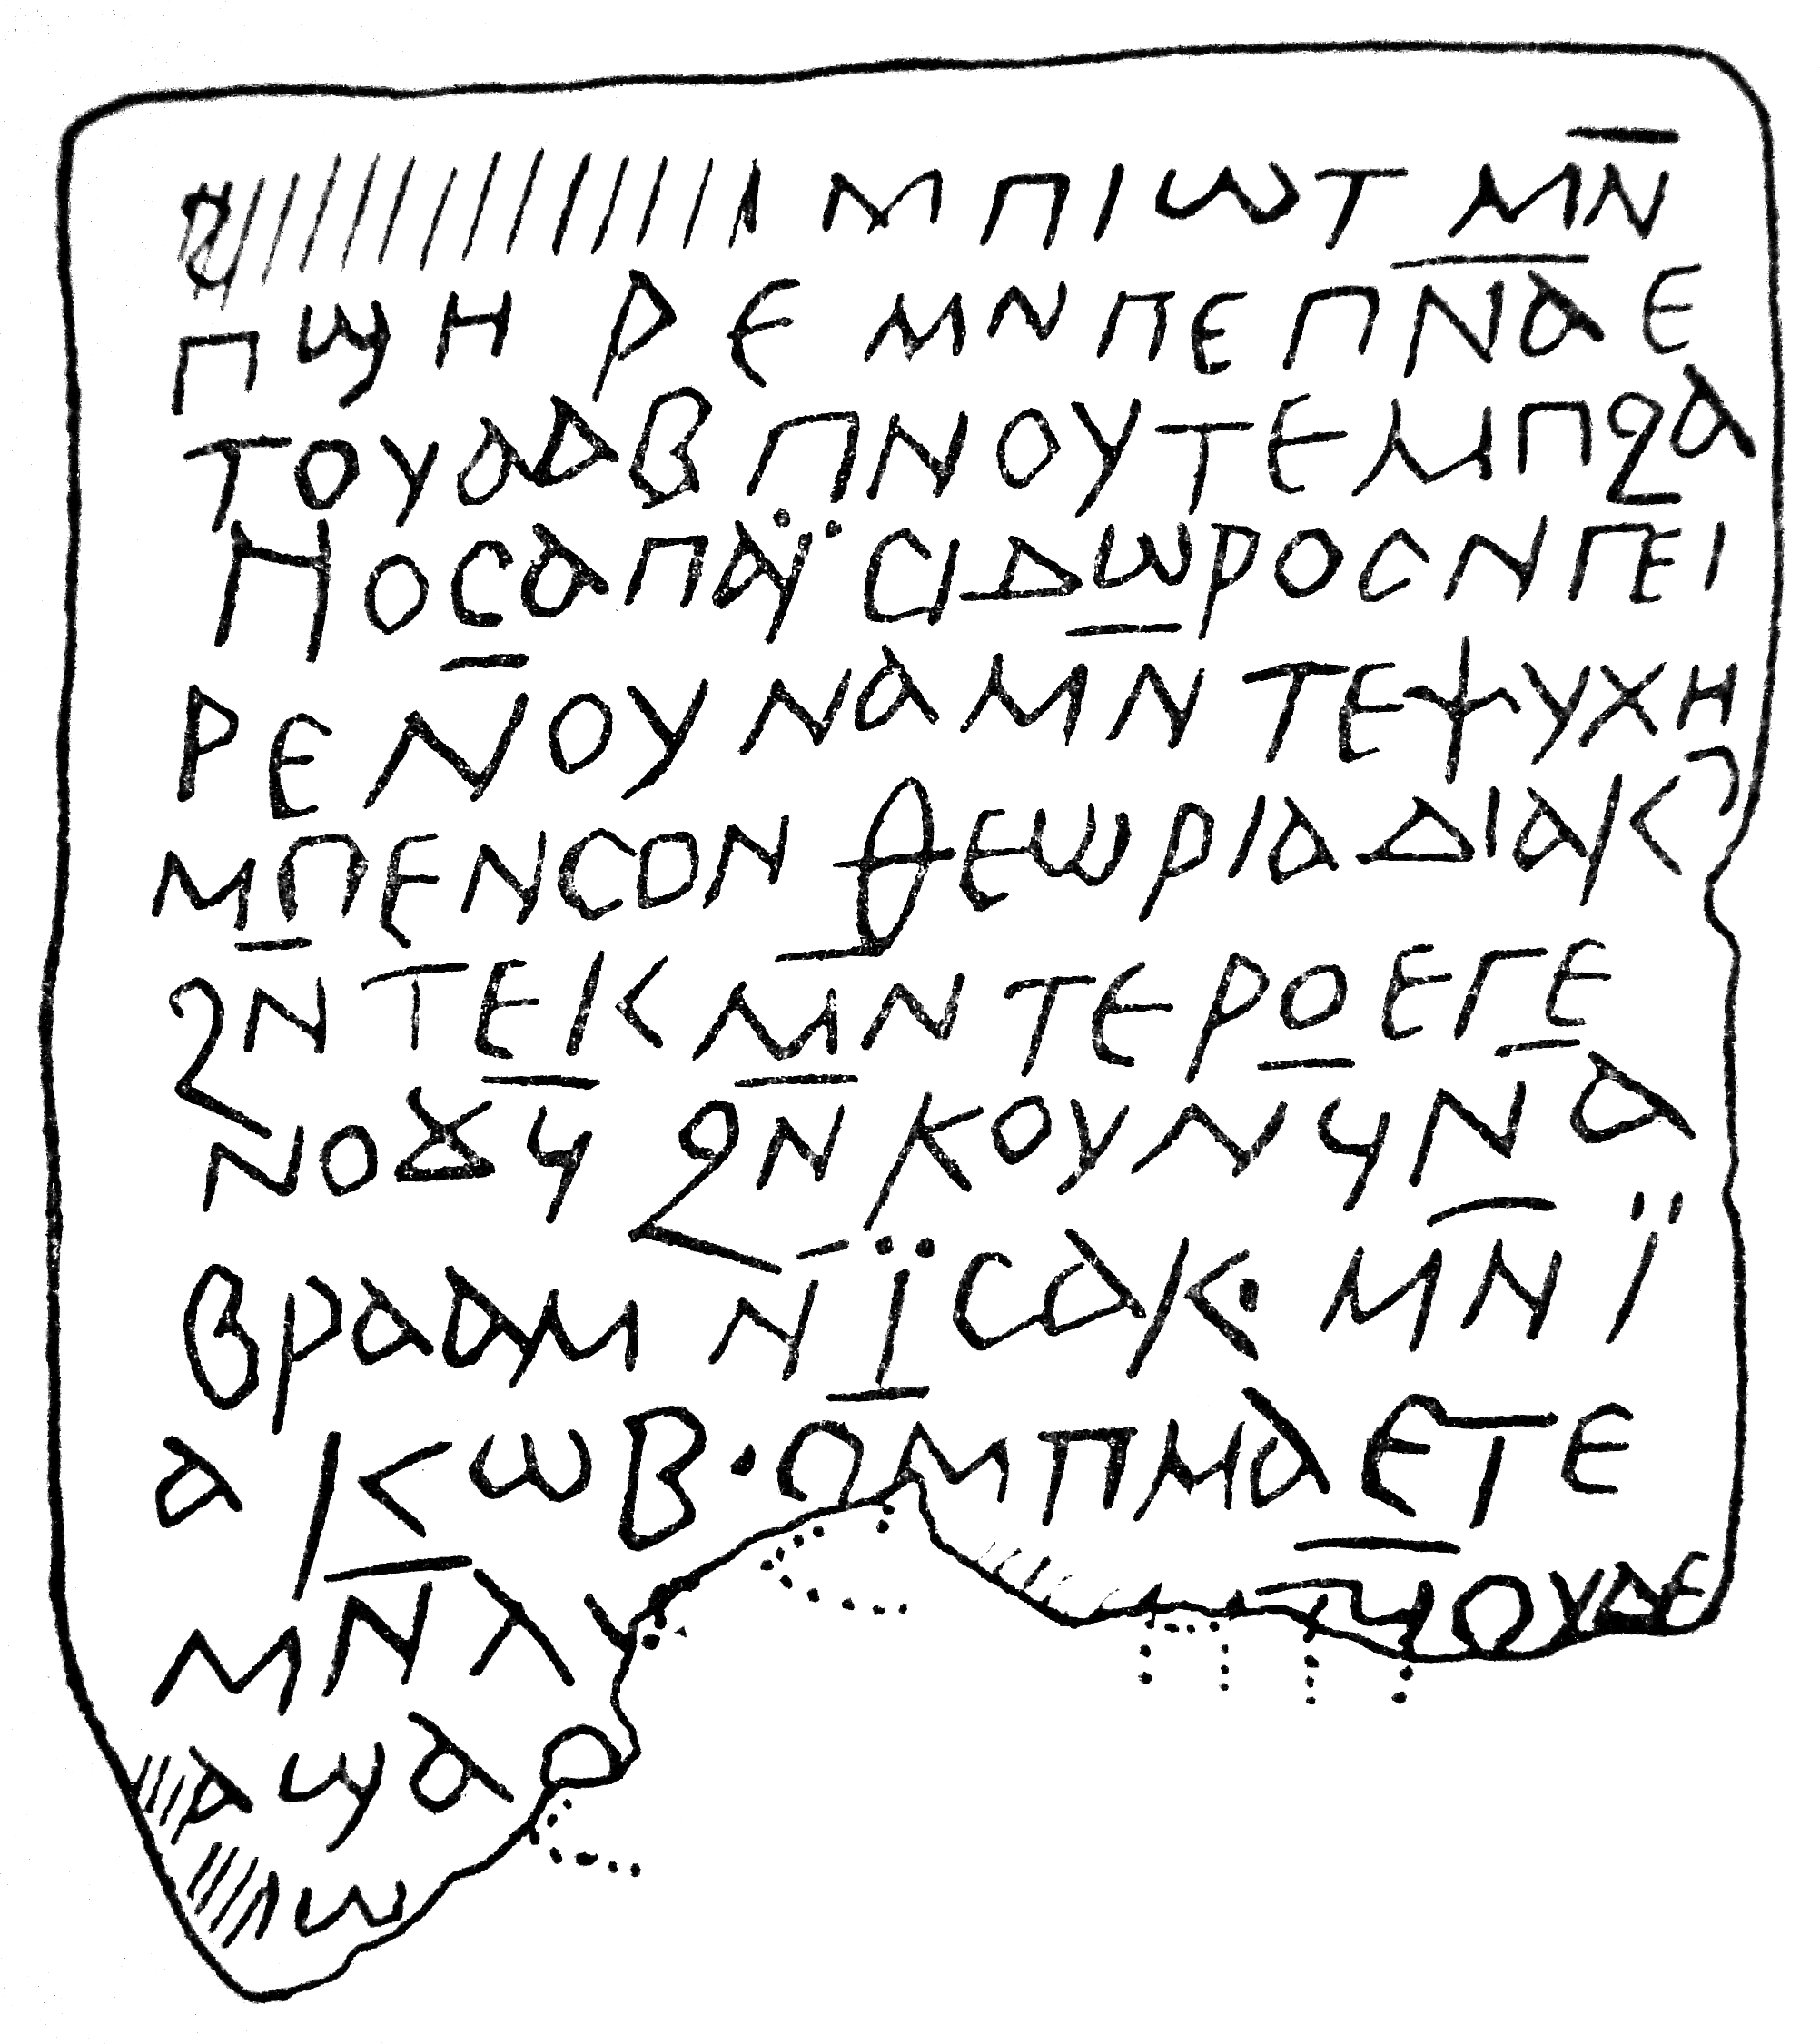 ⲙⲡⲓⲱⲧ ⲙⲛ̅
ⲡϣⲏⲣⲉ ⲙⲛⲡⲉⲡ̅ⲛ̅ⲁ̅ⲉ
ⲧⲟⲩⲁⲁⲃ ⲡⲛⲟⲩⲧⲉⲙⲡϩⲁ
ⲅⲓⲟⲥⲁⲡⲁⲓ̈ⲥⲓⲇⲱⲣⲟⲥⲛⲅⲉⲓ
ⲣⲉⲛ̅ⲟⲩⲛⲁⲙⲛ̅ⲧⲉⲯⲩⲭⲏ
ⲙⲡⲉⲛⲥⲟⲛ ⲑⲉⲱⲣⲓⲁⲇⲓⲁⲕ
ϩⲛ̅ⲧⲉⲕⲙⲛ̅ⲧⲉⲣⲟⲉⲅⲉ
ⲛⲟϫϥ̅ϩⲛ̅ⲕⲟⲩⲛϥ̅ⲛ̅ⲁ
ⲃⲣⲁⲁⲙ ⲛ̅ⲓ̈ⲥⲁⲕ· ⲙⲛ̅ⲓ̈
ⲁⲕⲱⲃ· ϩⲙ̅ⲡⲙⲁⲉⲧⲉ
ⲙⲛ̅ⲗⲩ ϥ̅ⲟⲩⲇⲉ
ⲁϣⲁϩ
ⲱ